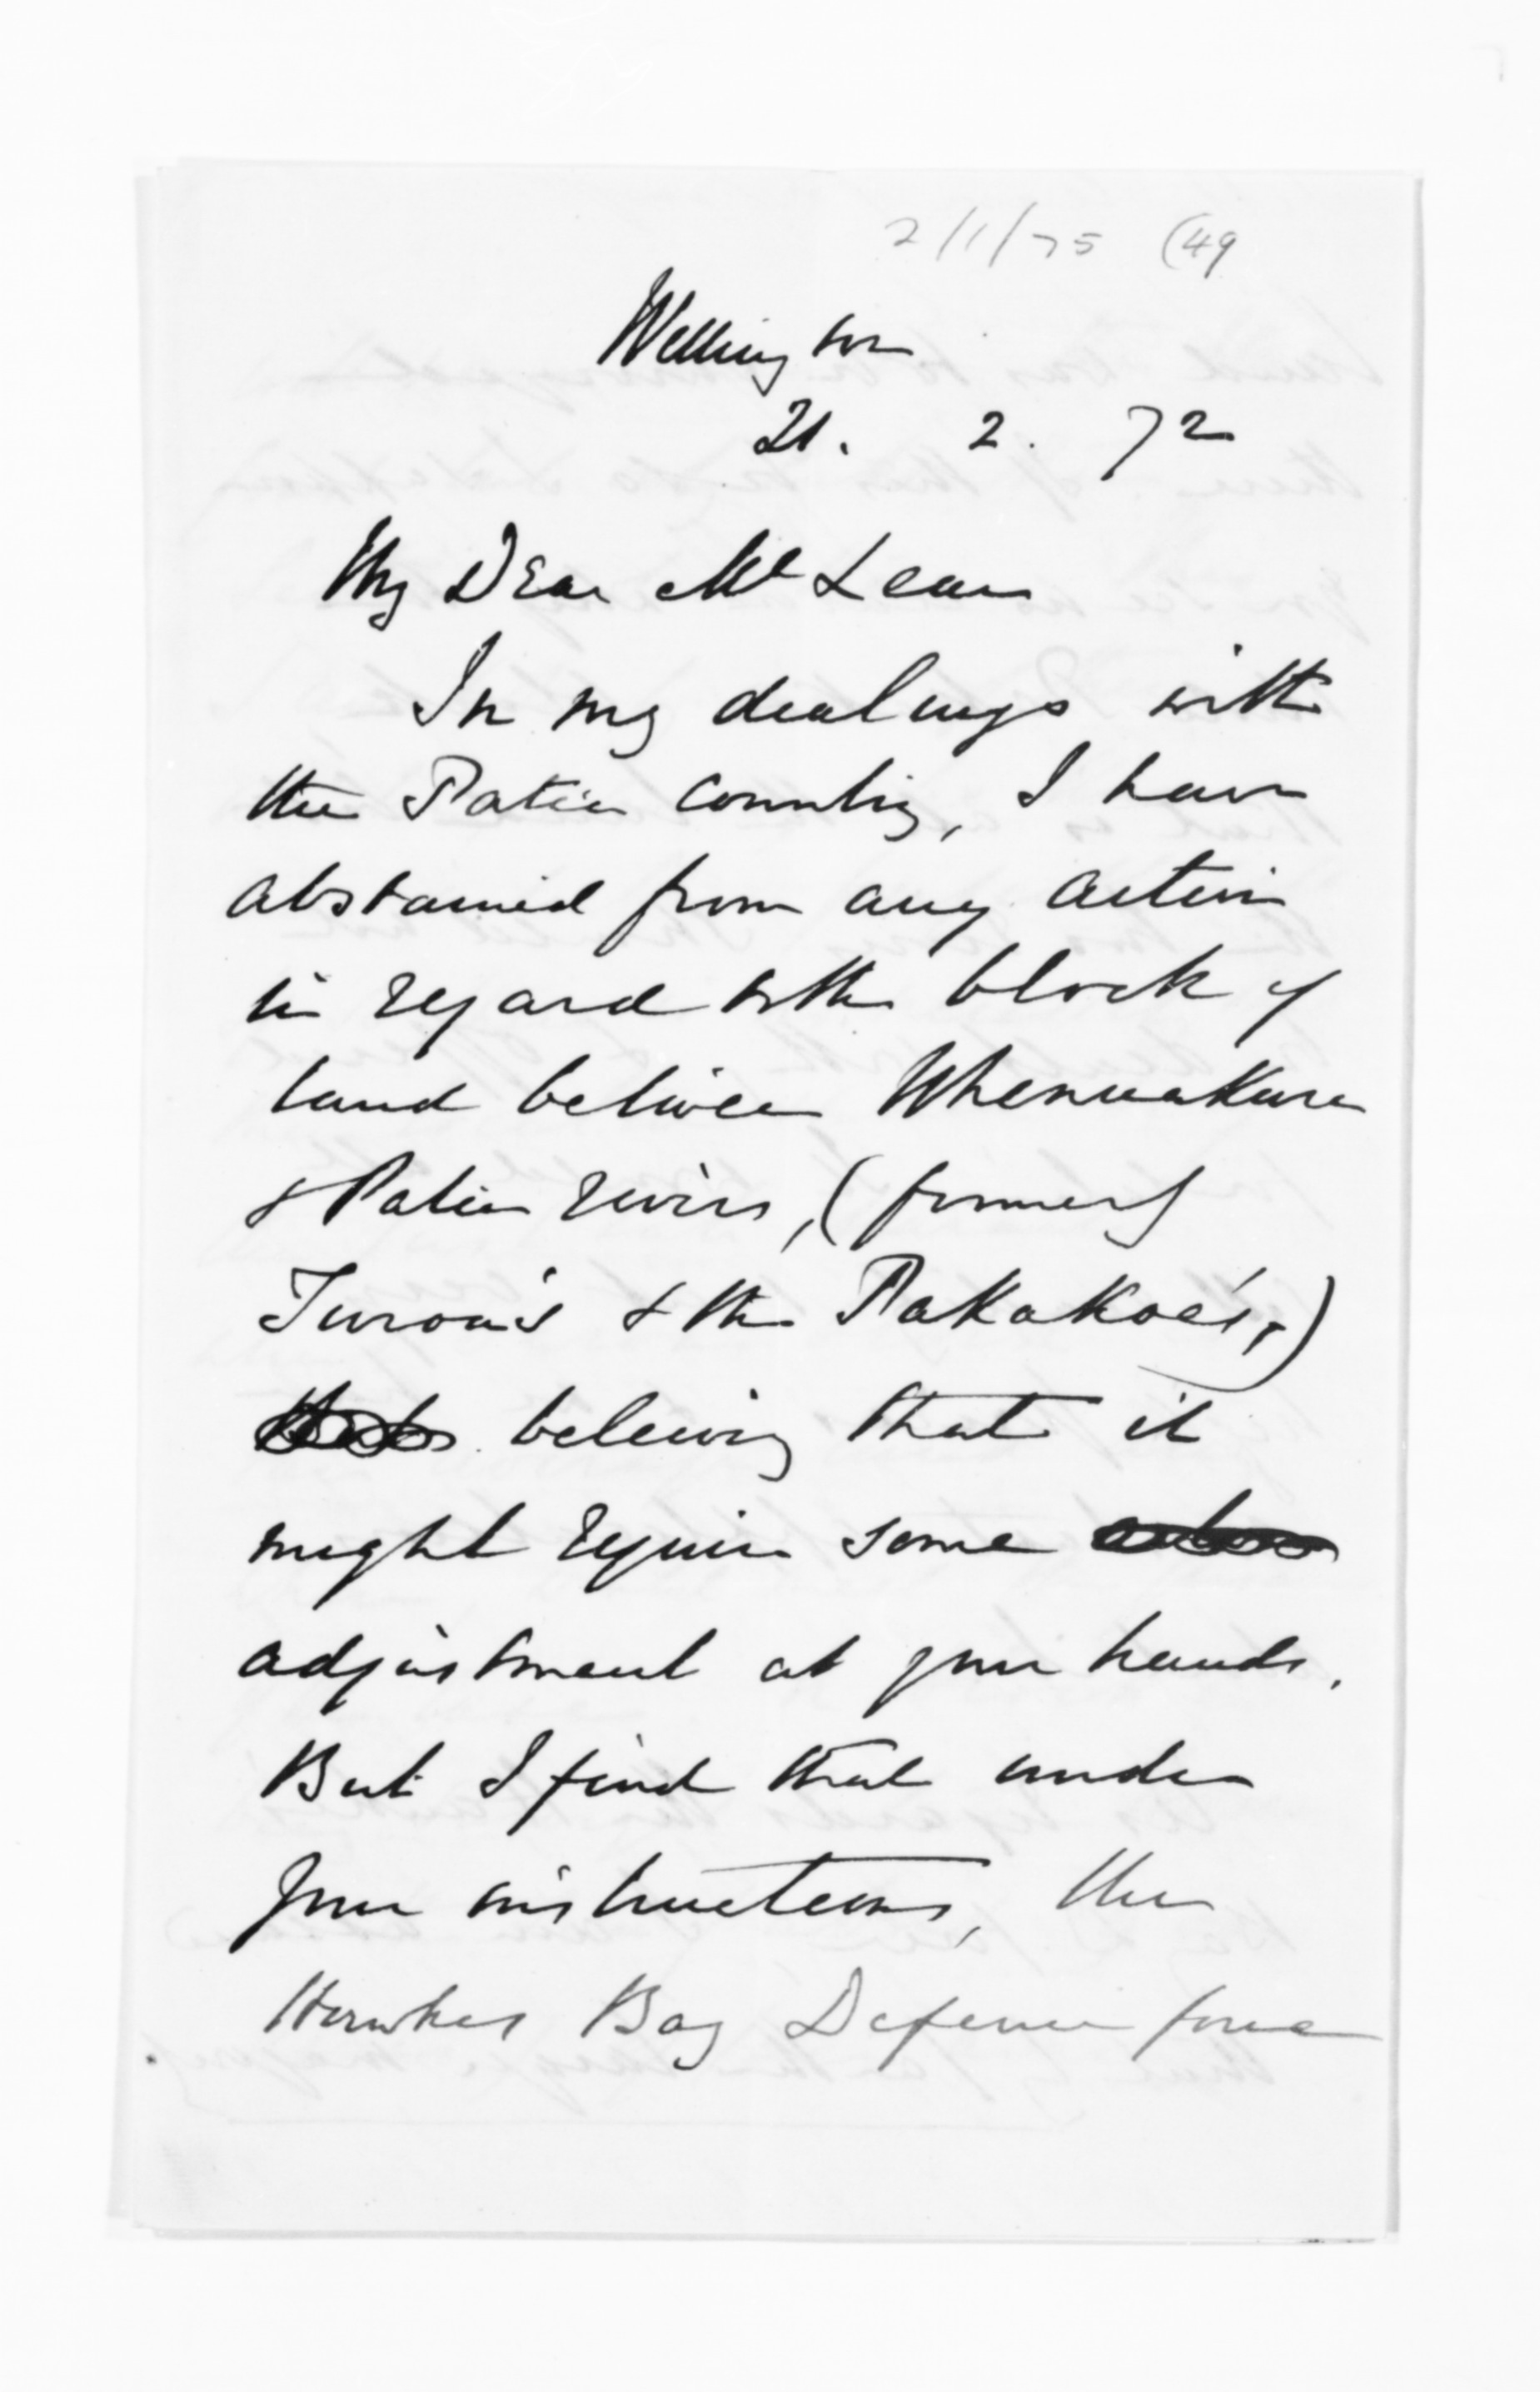 2/1/75 (49
Wellington
21. 2. 72
My Dear McLean
In my dealings with
the Patea Country, I have
abstained from any action
in regard to the block of
land between Whenuakura
& Patea rivers, (formerly
& the Pakakohe's,)
believing that it
might require some
adjustment at your hands.
But I find that under
your instructions, the
Hawkes Bay Defence force